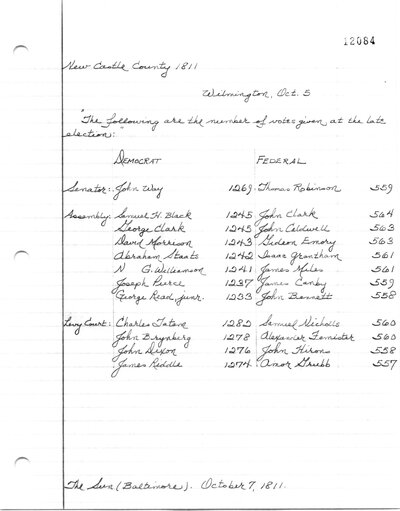 12084
New Castle County 1811
Wilmington, Oct. 5
"The following are the number of votes given at the late
election:"
DEMOCRAT FEDERAL
Senator: John Way 1269 Thomas Robinson 559
Assembly: Samuel H. Black 1245 John Clark 564
George Clark 1245 John Caldwell 563
David Morrison 1243 Gideon Emory 563
Abraham Staats 1242 Isaac Grantham 561
N G. Williamson 1241 James Miles 561
Joseph Pierce 1237 James Canby 559
George Read, junr. 1233 John Bennett 558
Levy Court: Charles Tatem 1280 Samuel Nicholls 560
John Brynberg 1278 Alexander 560
John Dixon 1276 John Hirons 558
James Riddle 1274 Amor Grubb 557
The Sun (Baltimore). October 7, 1811.